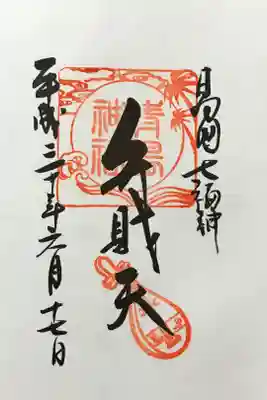 日向国七福神
青島
神社
弁財天
平成三十年六月十七日